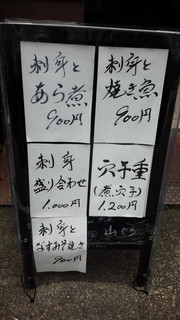 刺身と
あら煮
900円
刺身と
焼き魚
900円
刺身
盛り合わせ
1.000円
穴子重
(煮穴子)
1.200円
刺身と
900円